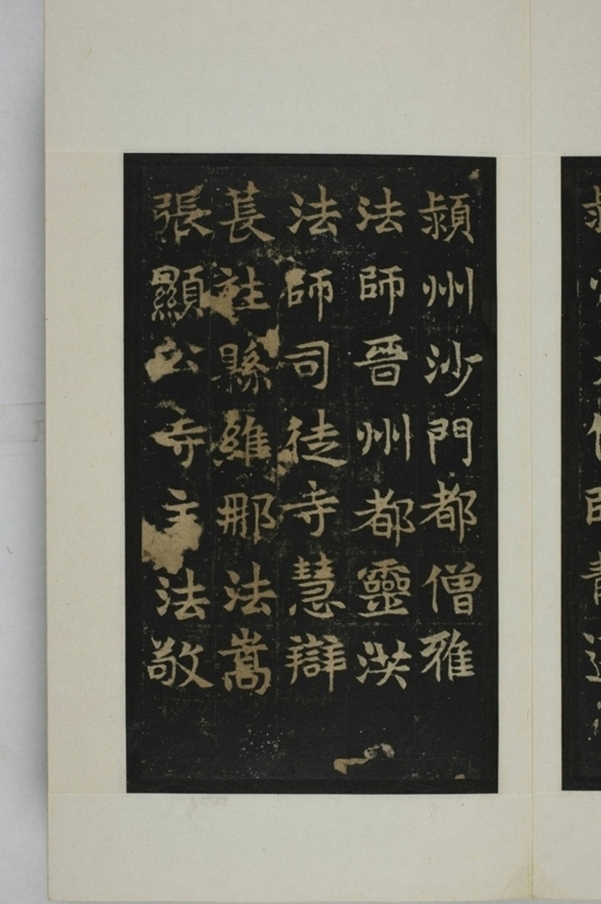 潁州沙門都僧雅
法師晉州都靈洪
法師司徒寺慧辯
萇社縣維那法嵩
張顯公寺主法敬